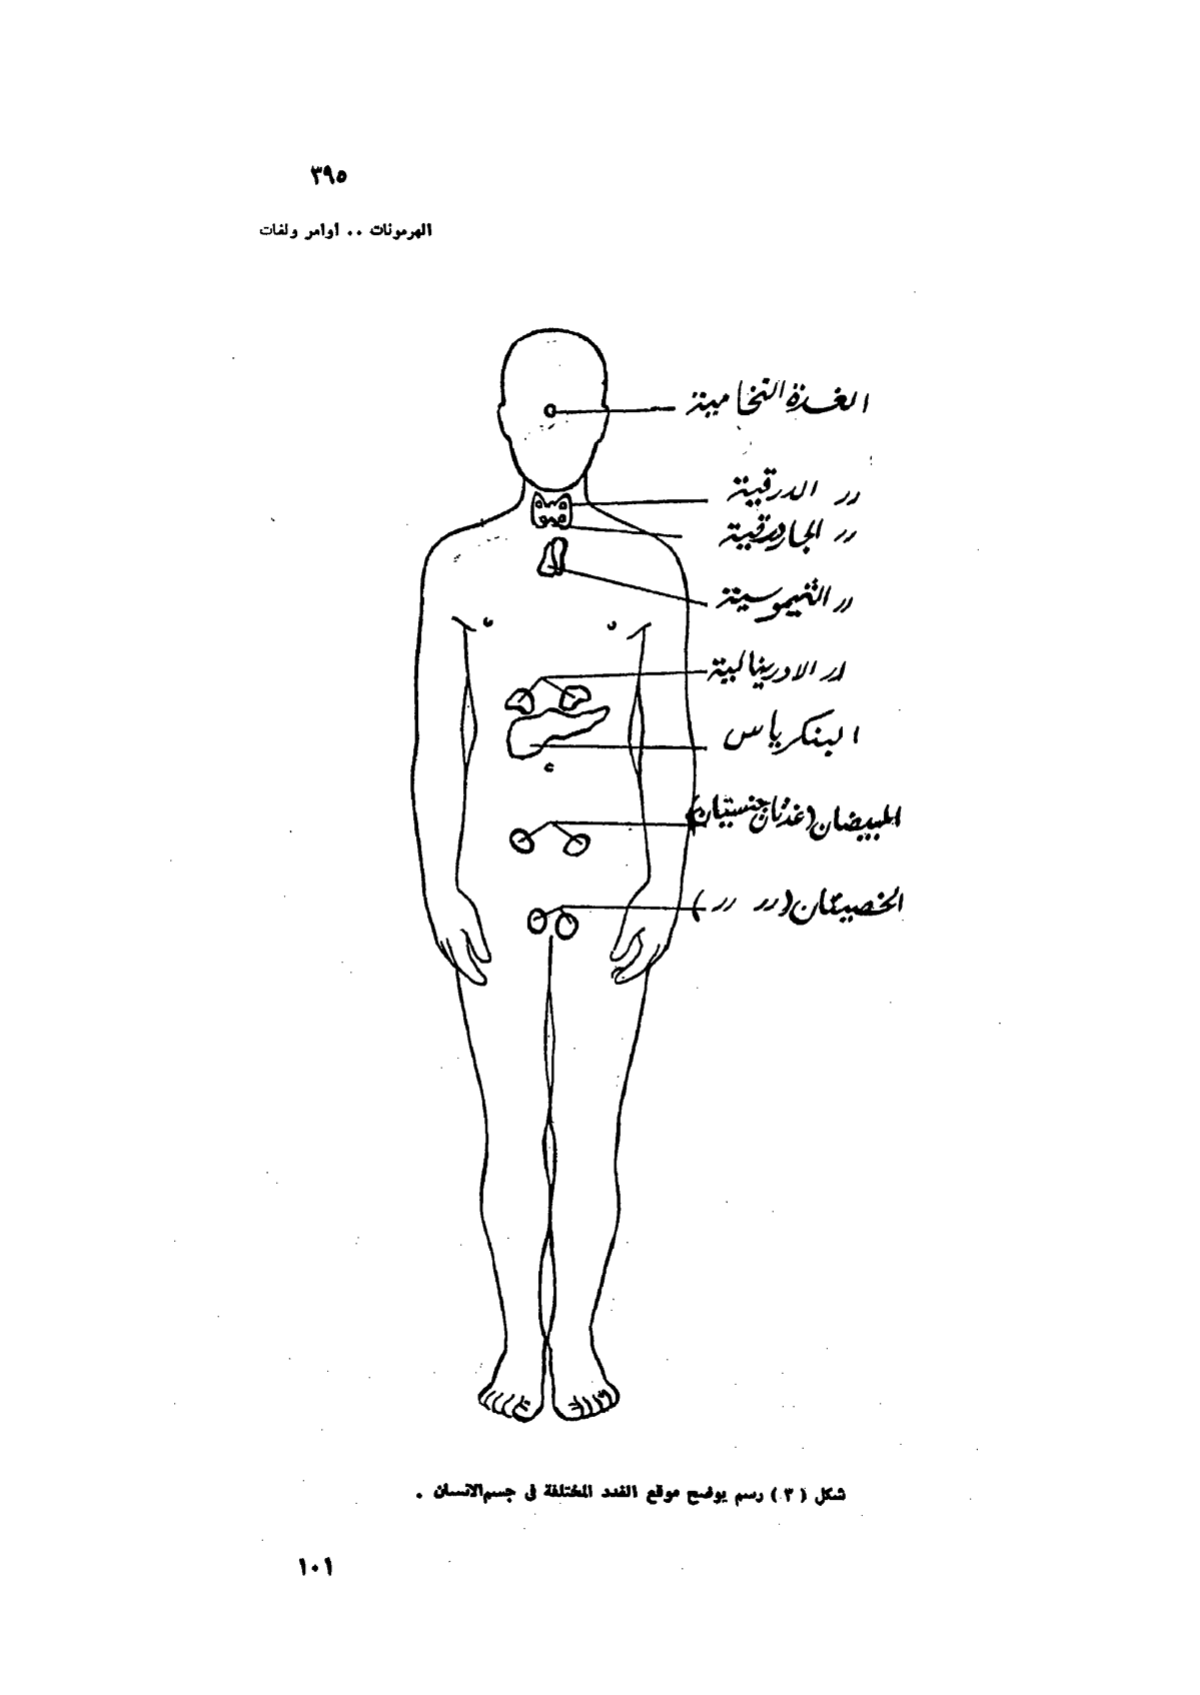 ٣٩٥
الهرمونات .. أوامر ولغات
الغدة النخامية
〃 الدرقية
〃 الجاردرقية
〃 الثيموسية
〃 الادرينالية
البنكرياس
المبيضان (غدتان جنسيتان)
الخصيتان (〃 〃)
شكل (٣) رسم يوضح موقع الغدد المختلفة فى جسم الانسان .
١٠١